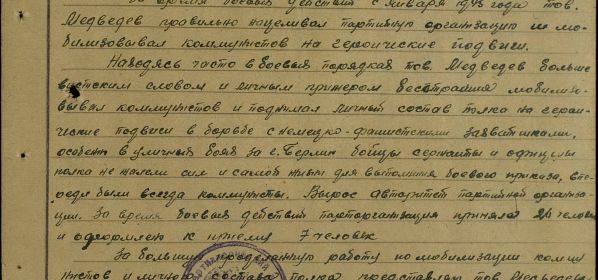 За время боевых действий с января 1945 года тов.
Медведев правильно нацеливал партийную организацию и мо-
билизовывал коммунистов на героические подвиги.
Находясь часто в боевых порядках тов. Медведев больше
вистским словом и личным примером бесстрашия мобилизо-
вывал коммунистов и поднимал личный состав полка на герои-
ческие подвиги в борьбе с немецко-фашистскими захватчиками,
особенно в уличных боях за г. Берлин бойцы сержанты и офицеры
полка не жалели сил и самой жизни для выполнения боевого приказа, впе-
реди были всегда коммунисты. Вырос авторитет партийной организа-
ции. За время боевых действий парторганизация приняла 24 человек
и оформлено к приему 7 человек
За большую проделанную работу по мобилизации комму
нистов и личного состава полка представляю тов. Медведев